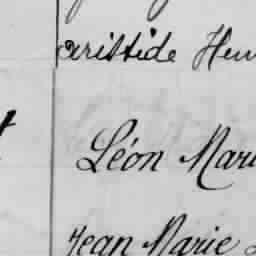 aristide Hen
Léon Mari
Jean Marie